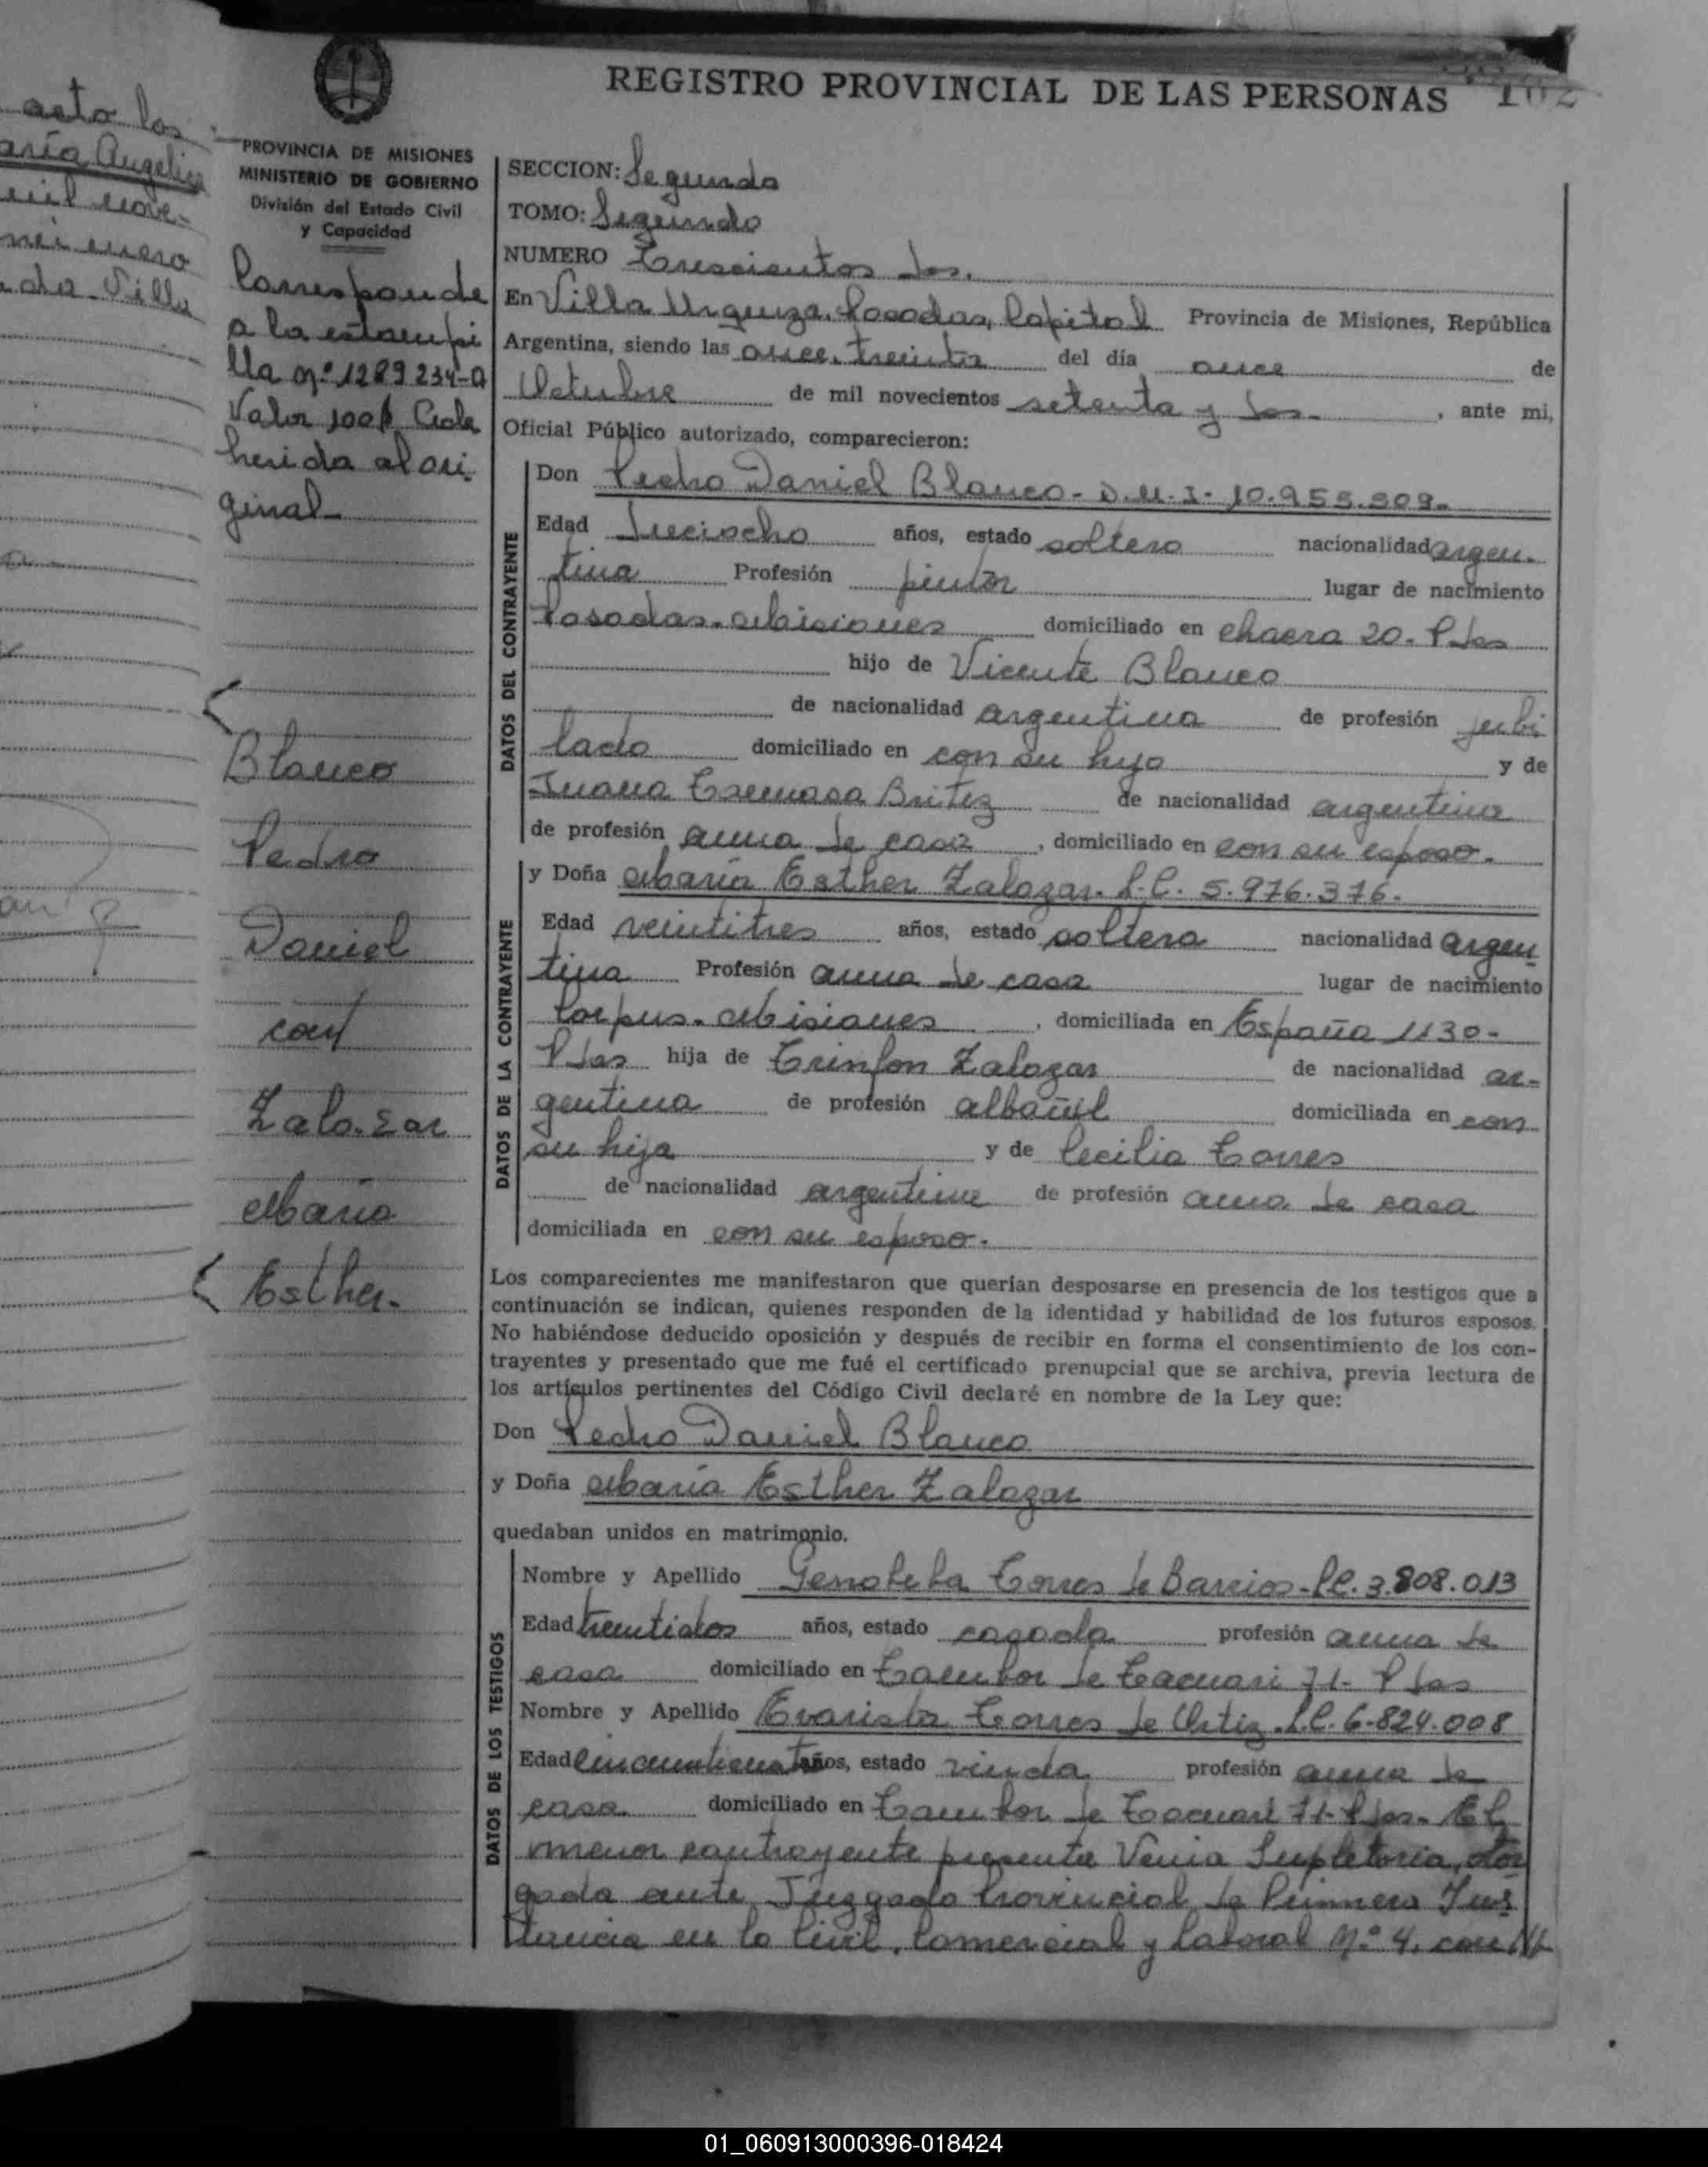 acto los
aría Angelica
mil nove-
da Villa
PROVINCIA DE MISIONES
MINISTERIO DE GOBIERNO
División del Estado Civil
y Capacidad
Corresponde
a la estampi
lla nº 1289234-A
Valor 100$
herida al ori
ginal-
Blanco
Pedro
Daniel
con
Zalazar
María
Esther-
REGISTRO PROVINCIAL DE LAS PERSONAS 102
SECCION: Segunda
TOMO: Segundo
NUMERO Trescientos dos.
En Villa Urquiza, Posadas, Capital Provincia de Misiones, República
Argentina, siendo las once, treinta del día once de
Octubre de mil novecientos setenta y dos- , ante mi,
Oficial Público autorizado, comparecieron:
DATOS DEL CONTRAYENTE
Don Pedro Daniel Blanco- D.N.I- 10.955.909-
Edad dieciocho años, estado soltero nacionalidad argen-
tina Profesión pintor lugar de nacimiento
Posadas-Misiones domiciliado en chacra 20- Pdas
hijo de Vicente Blanco
de nacionalidad argentina de profesión jubi
lado domiciliado en con su hijo y de
Juana Tomasa Britez de nacionalidad argentina
de profesión ama de casa , domiciliado en con su esposo-
DATOS DE LA CONTRAYENTE
y Doña María Esther Zalazar- L.C. 5.976.376-
Edad veintitres años, estado soltera nacionalidad argen
tina Profesión ama de casa lugar de nacimiento
Corpus-Misiones , domiciliada en España 1130-
Pdas hija de Trinfon Zalazar de nacionalidad ar-
gentina de profesión albañil domiciliada en con
su hija y de Cecilia Torres
de nacionalidad argentina de profesión ama de casa
domiciliada en con su esposo-
Los comparecientes me manifestaron que querían desposarse en presencia de los testigos que a
continuación se indican, quienes responden de la identidad y habilidad de los futuros esposos.
No habiéndose deducido oposición y después de recibir en forma el consentimiento de los con-
trayentes y presentado que me fué el certificado prenupcial que se archiva, previa lectura de
los artículos pertinentes del Código Civil declaré en nombre de la Ley que:
Don Pedro Daniel Blanco
y Doña María Esther Zalazar
quedaban unidos en matrimonio.
DATOS DE LOS TESTIGOS
Nombre y Apellido Genobeba Torres de Barrios- LC. 3.808.013
Edad treintidos años, estado casada profesión ama de
casa domiciliado en Tambor de Tacuari 71- Pdas
Nombre y Apellido Evarista Torres de Ortiz- L.C. 6.824.008
Edad años, estado viuda profesión ama de
casa domiciliado en Tambor de Tacuari 71- Pdas- El
menor contrayente presenta Venia Supletoria, otor
gada ante Juzgado Provincial de Primera Ins
tancia en lo Civil, Comercial y Laboral Nº 4, con
01_060913000396-018424